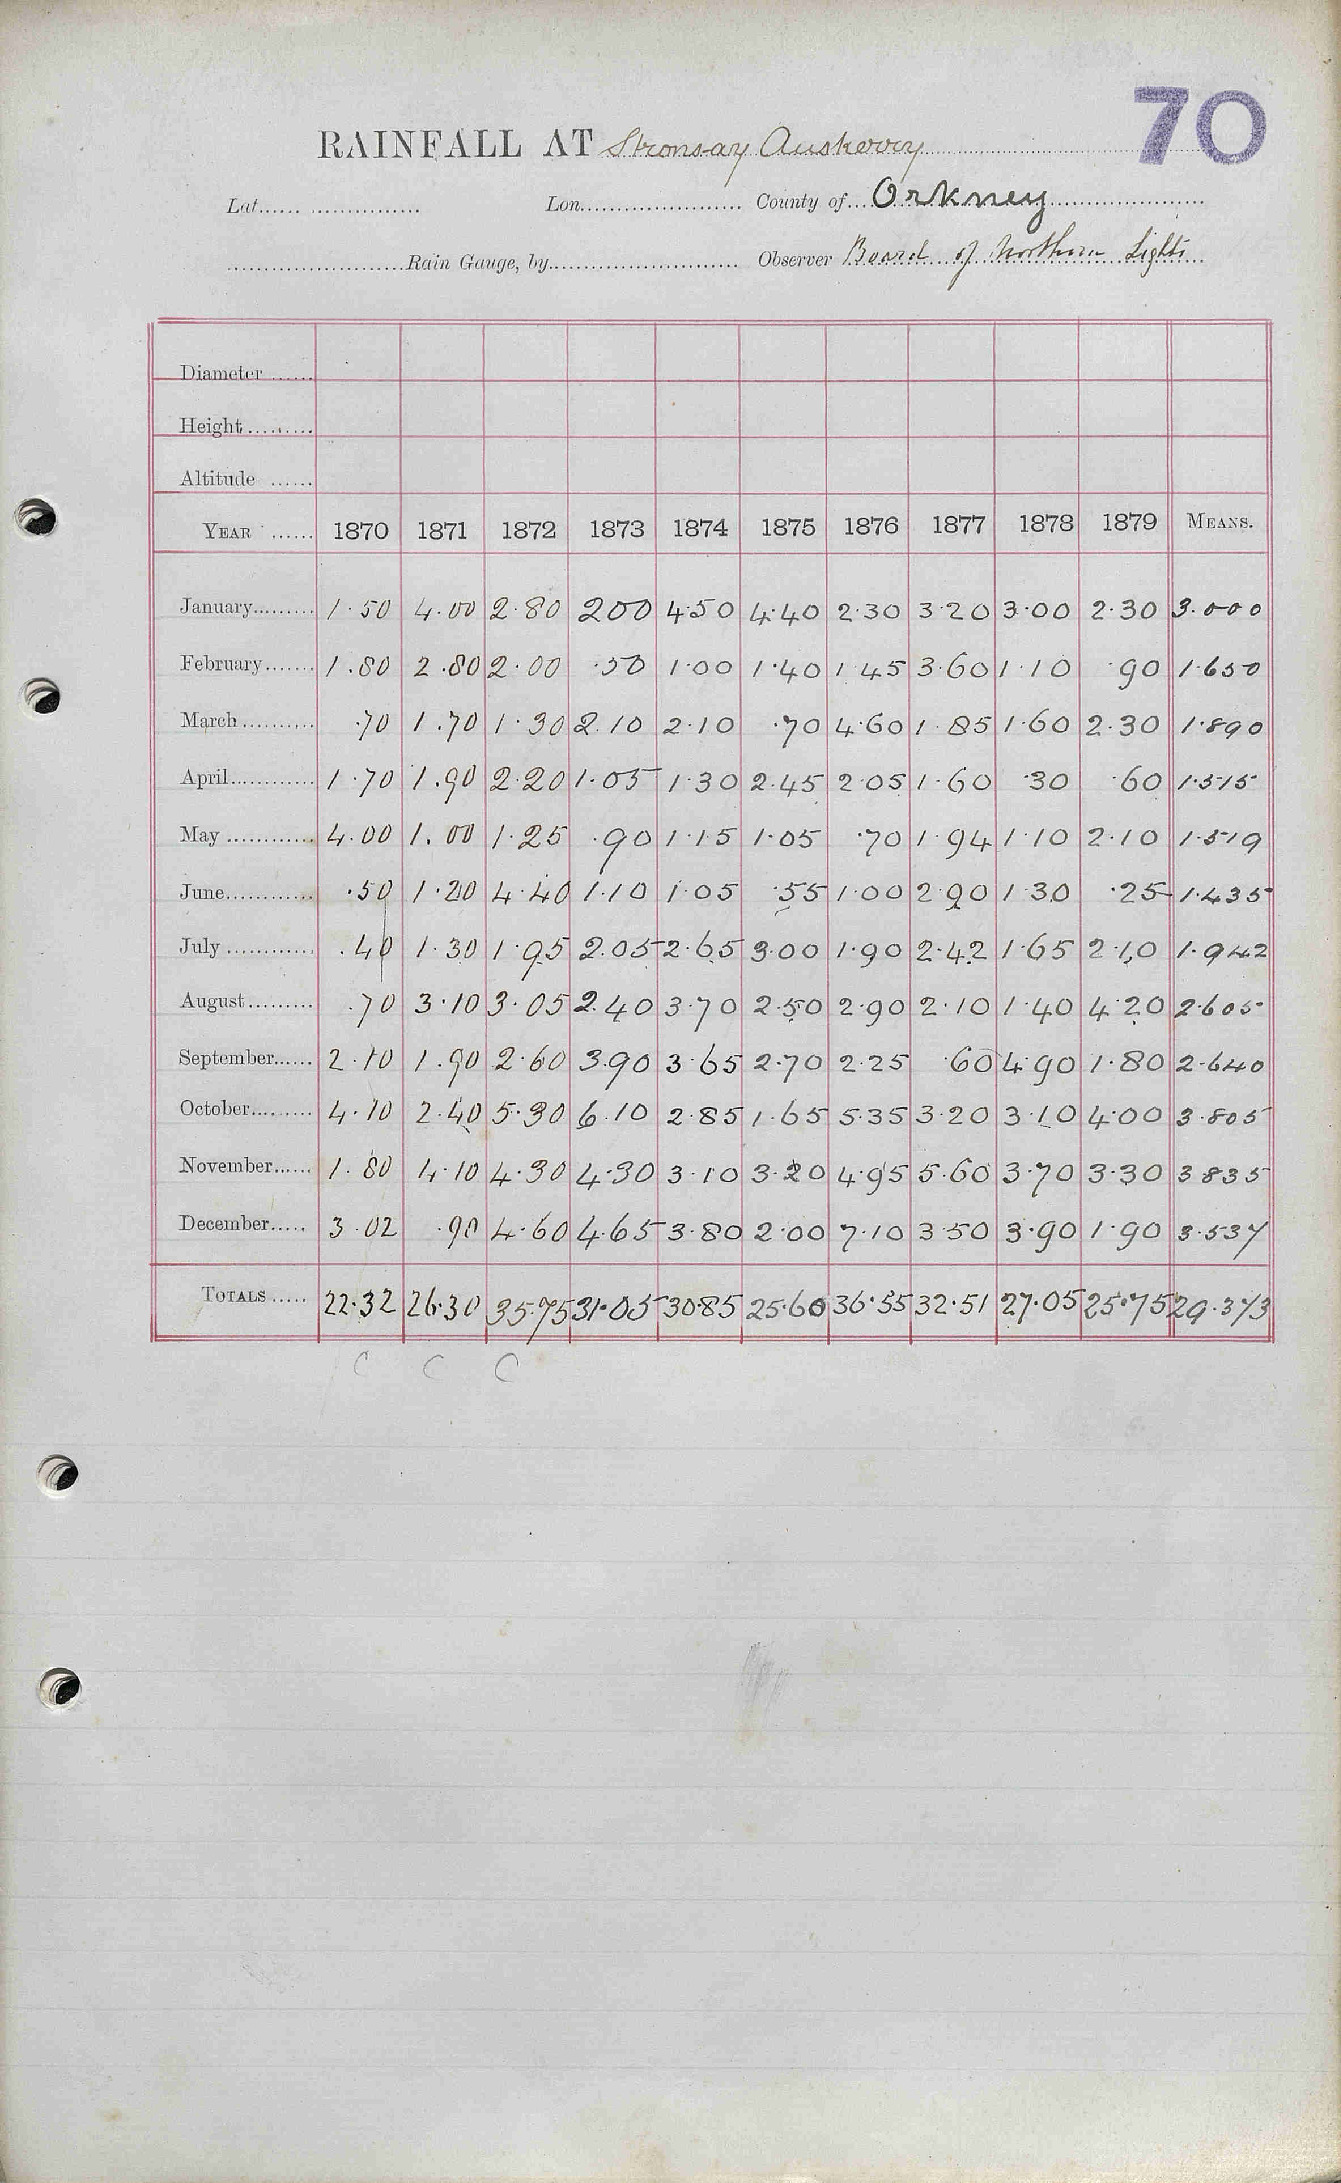 70
RAINFALL AT Stronsay Auskerry
Lat. Lon. County of Orkney
Rain Gauge, by Observer Board of Northern Lights
Diameter
Height
Altitude
YEAR 1870 1871 1872 1873 1874 1875 1876 1877 1878 1879 MEANS.
January 1·50 4·00 2·80 200 4·50 4·40 2·30 3·20 3·00 2·30 3·000
February 1·80 2·80 2·00 ·50 1·00 1·40 1·45 3·60 1·10 ·90 1·650
March ·70 1·70 1·30 2·10 2·10 ·70 4·60 1·85 1·60 2·30 1·890
April 1·70 1·90 2·20 1·05 1·30 2·45 2·05 1·60 ·30 ·60 1·515
May 4·00 1·00 1·25 ·90 1·15 1·05 ·70 1·94 1·10 2·10 1·519
June ·50 1·20 4·40 1·10 1·05 ·55 1·00 2·90 1·30 ·25 1·435
July ·40 1·30 1·95 2·05 2·65 3·00 1·90 2·42 1·65 2·10 1·942
August ·70 3·10 3·05 2·40 3·70 2·50 2·90 2·10 1·40 4·20 2·605
September 2·10 1·90 2·60 3·90 3·65 2·70 2·25 ·60 4·90 1·80 2·640
October 4·10 2·40 5·30 6·10 2·85 1·65 5·35 3·20 3·10 4·00 3·805
November 1·80 4·10 4·30 4·30 3·10 3·20 4·95 5·60 3·70 3·30 3·835
December 3·02 ·90 4·60 4·65 3·80 2·00 7·10 3·50 3·90 1·90 3·537
TOTALS 22·32 26·30 35·75 31·05 30·85 25·60 36·55 32·51 27·05 25·75 29·373
C C C